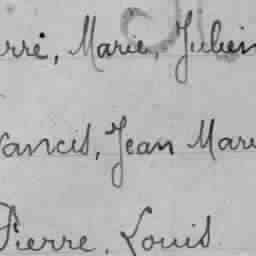 erré, Marie, Julien
rancis, Jean Marie
Pierre, Louis